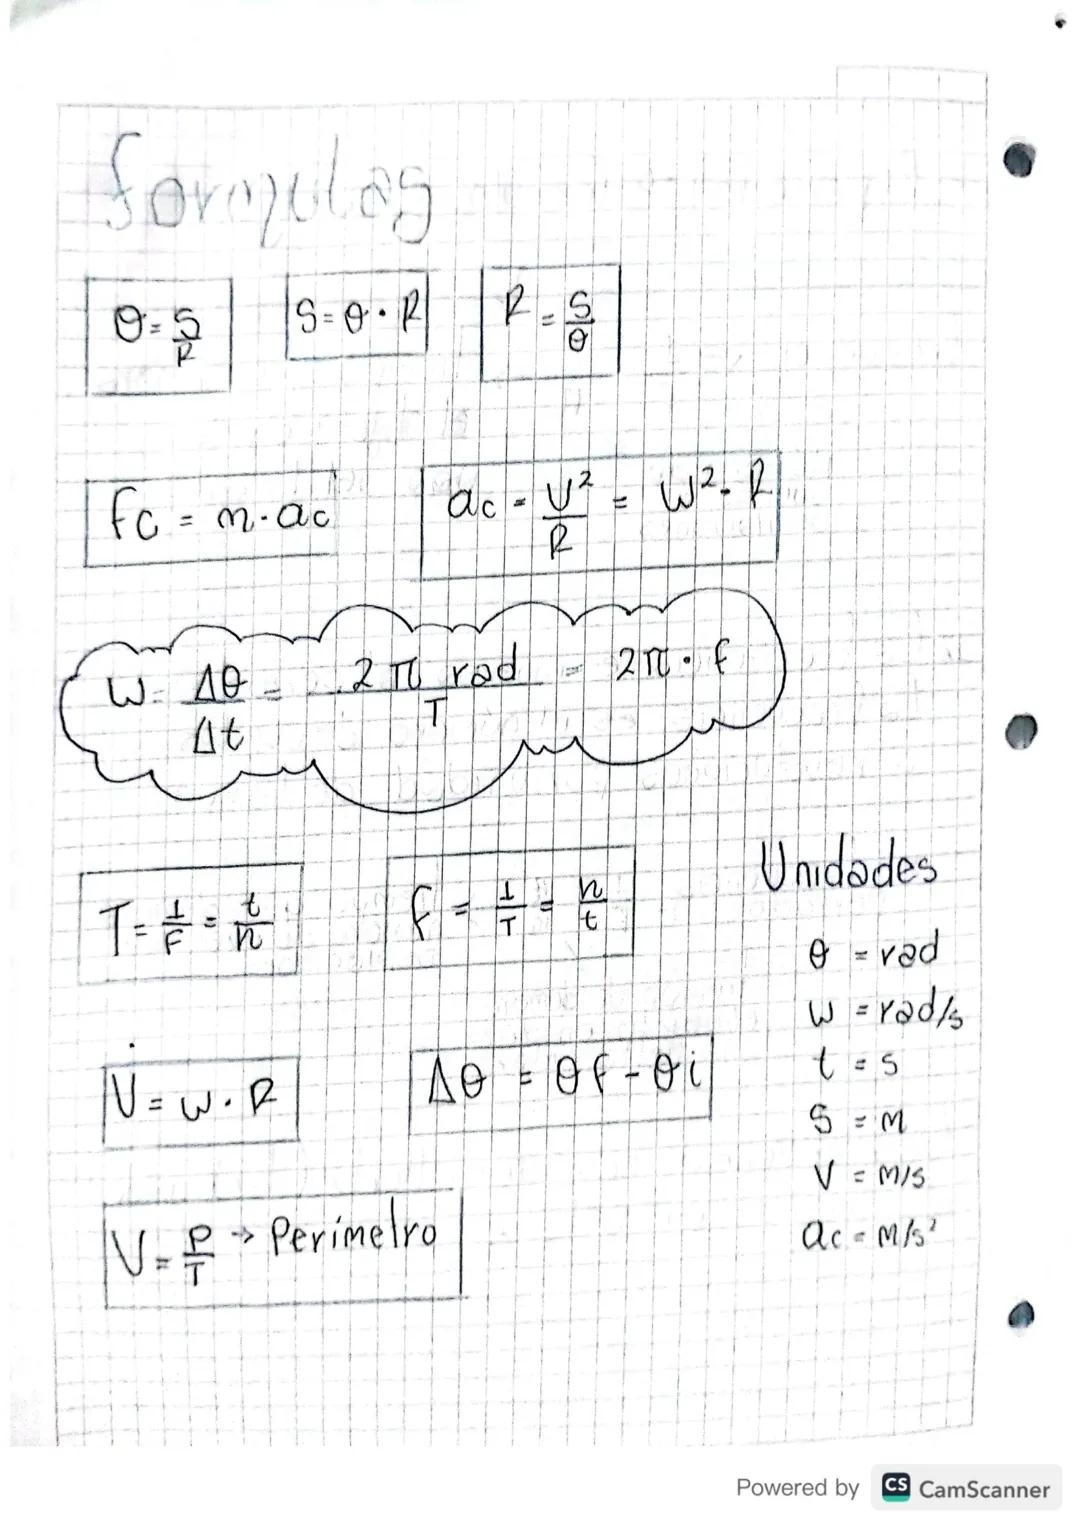 formulas
θ = S/R   S = θ · R   R = S/θ
fc = m · ac   ac = V²/R = W² · R
W = Δθ/Δt = 2π rad/T = 2π · f
T = 1/F = t/n   f = 1/T = n/t
Unidades
θ = rad
W = rad/s
t = s
S = M
V = M/s
ac = M/s²
V = W · R   Δθ = θf - θi
V = P/T → Perímetro
Powered by CS CamScanner